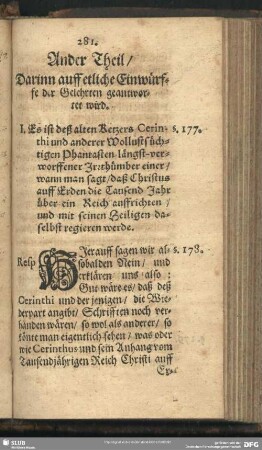 281.
Ander Theil /
Darinn auff etliche Einwürf-
fe der Gelehrten geantwor-
tet wird.
I. Es ist deß alten Ketzers Cerin- s. 177.
thi und anderer Wollustsüch-
tigen Phantasten längst-ver-
worffener Irrthümber einer /
wann man sagt / daß Christus
auff Erden die Tausend Jahr
über ein Reich auffrichten /
und mit seinen Heiligen da-
selbst regieren werde.
Resp. Hierauff sagen wir al- s. 178.
sobalden Nein / und
erklären uns also :
Gut wäre es / daß deß
Cerinthi und der jenigen / die Wie-
derpart angibt / Schrifften noch ver-
handen wären / so wol als anderer / so
könte man eigentlich sehen / was oder
wie Cerinthus und sein Anhang vom
Tausendjährigen Reich Christi auff
Er-
SLUB
DFG